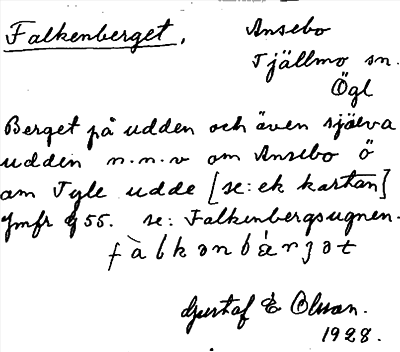 Falkenberget. Ansebo
Tjällmo sn.
Ögl
Berget på udden och även själva
udden n.n.v om Ansebo ö
om Tyle udde [se: ek kartan]
Jmfr G 55. se: Falkenbergsugnen.
fàlkənbárjət
Gustaf E Olsson.
1928.